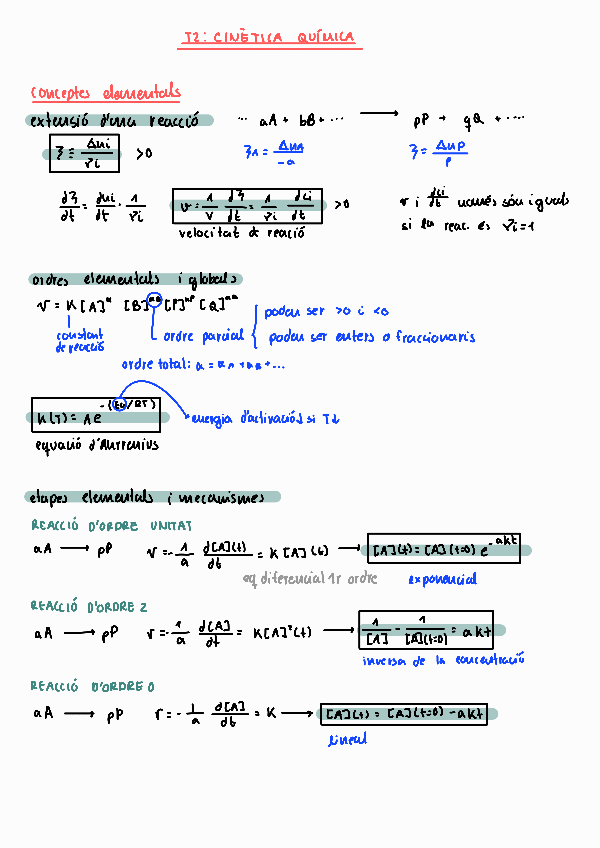 T2: CINÈTICA QUÍMICA
conceptes elementals
extensió d'una reacció ... aA + bB + ... ⟶ pP + qQ + ....
ξ ≡ Δni / νi >0 ξA = ΔnA / -a ξ = ΔnP / p
dξ/dt = dni/dt · 1/νi v = 1/V dξ/dt = 1/νi dci/dt >0 v i dci/dt només són iguals
velocitat de reació si la reac. és νi=1
ordres elementals i globals
v = K[A]^nA [B]^nB [P]^nP [Q]^nQ
poden ser >0 i <0
constant de reacció
ordre parcial
poden ser enters o fraccionaris
ordre total: n = nA + nB + ...
K(T) = A e^-(Ea/RT)
energia d'activació↓ si T↓
equació d'Arrhenius
etapes elementals i mecanismes
REACCIÓ D'ORDRE UNITAT
aA ⟶ pP v = -1/a d[A](t)/dt = K[A](t) ⟶ [A](t) = [A](t=0) e^-akt
eq diferencial 1r ordre exponencial
REACCIÓ D'ORDRE 2
aA ⟶ pP v = -1/a d[A]/dt = K[A]²(t) ⟶ 1/[A] - 1/[A](t=0) = akt
inversa de la concentració
REACCIÓ D'ORDRE 0
aA ⟶ pP r = -1/a d[A]/dt = K ⟶ [A](t) = [A](t=0) - akt
lineal